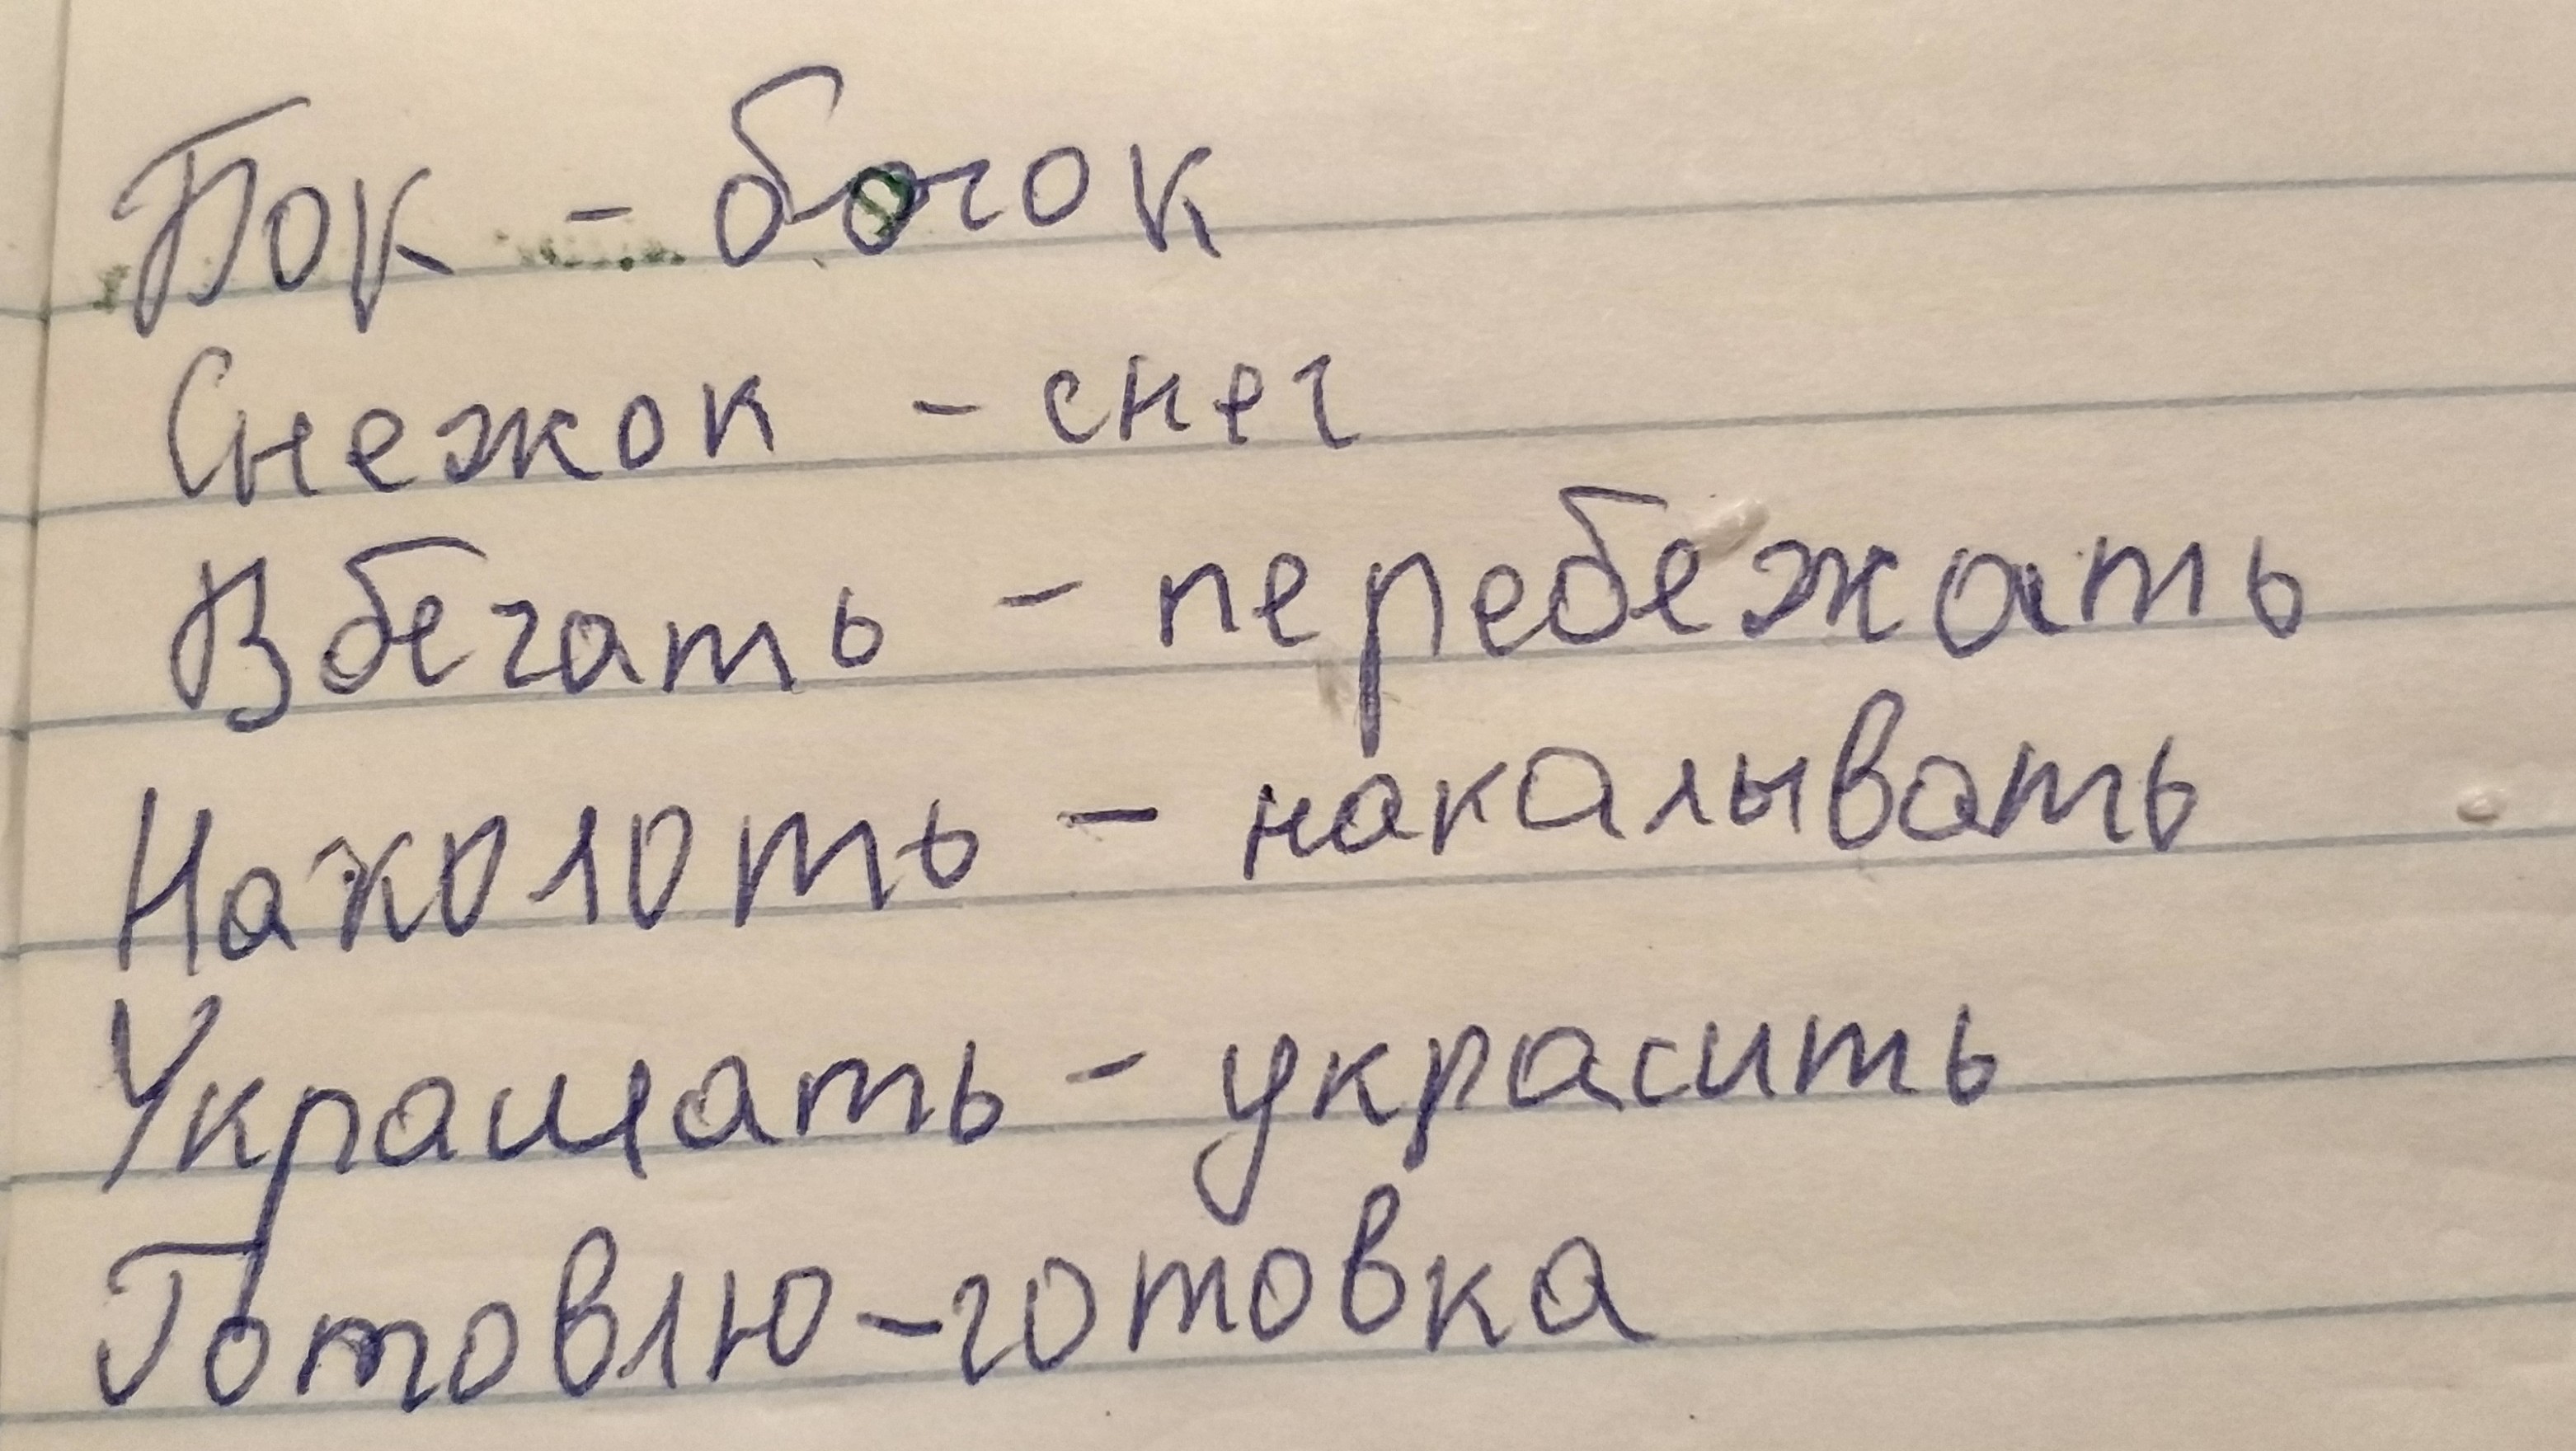 Бок - бочок
Снежок - снег
Вбегать - перебежать
Наколоть - накалывать
Украшать - украсить
Готовлю - готовка